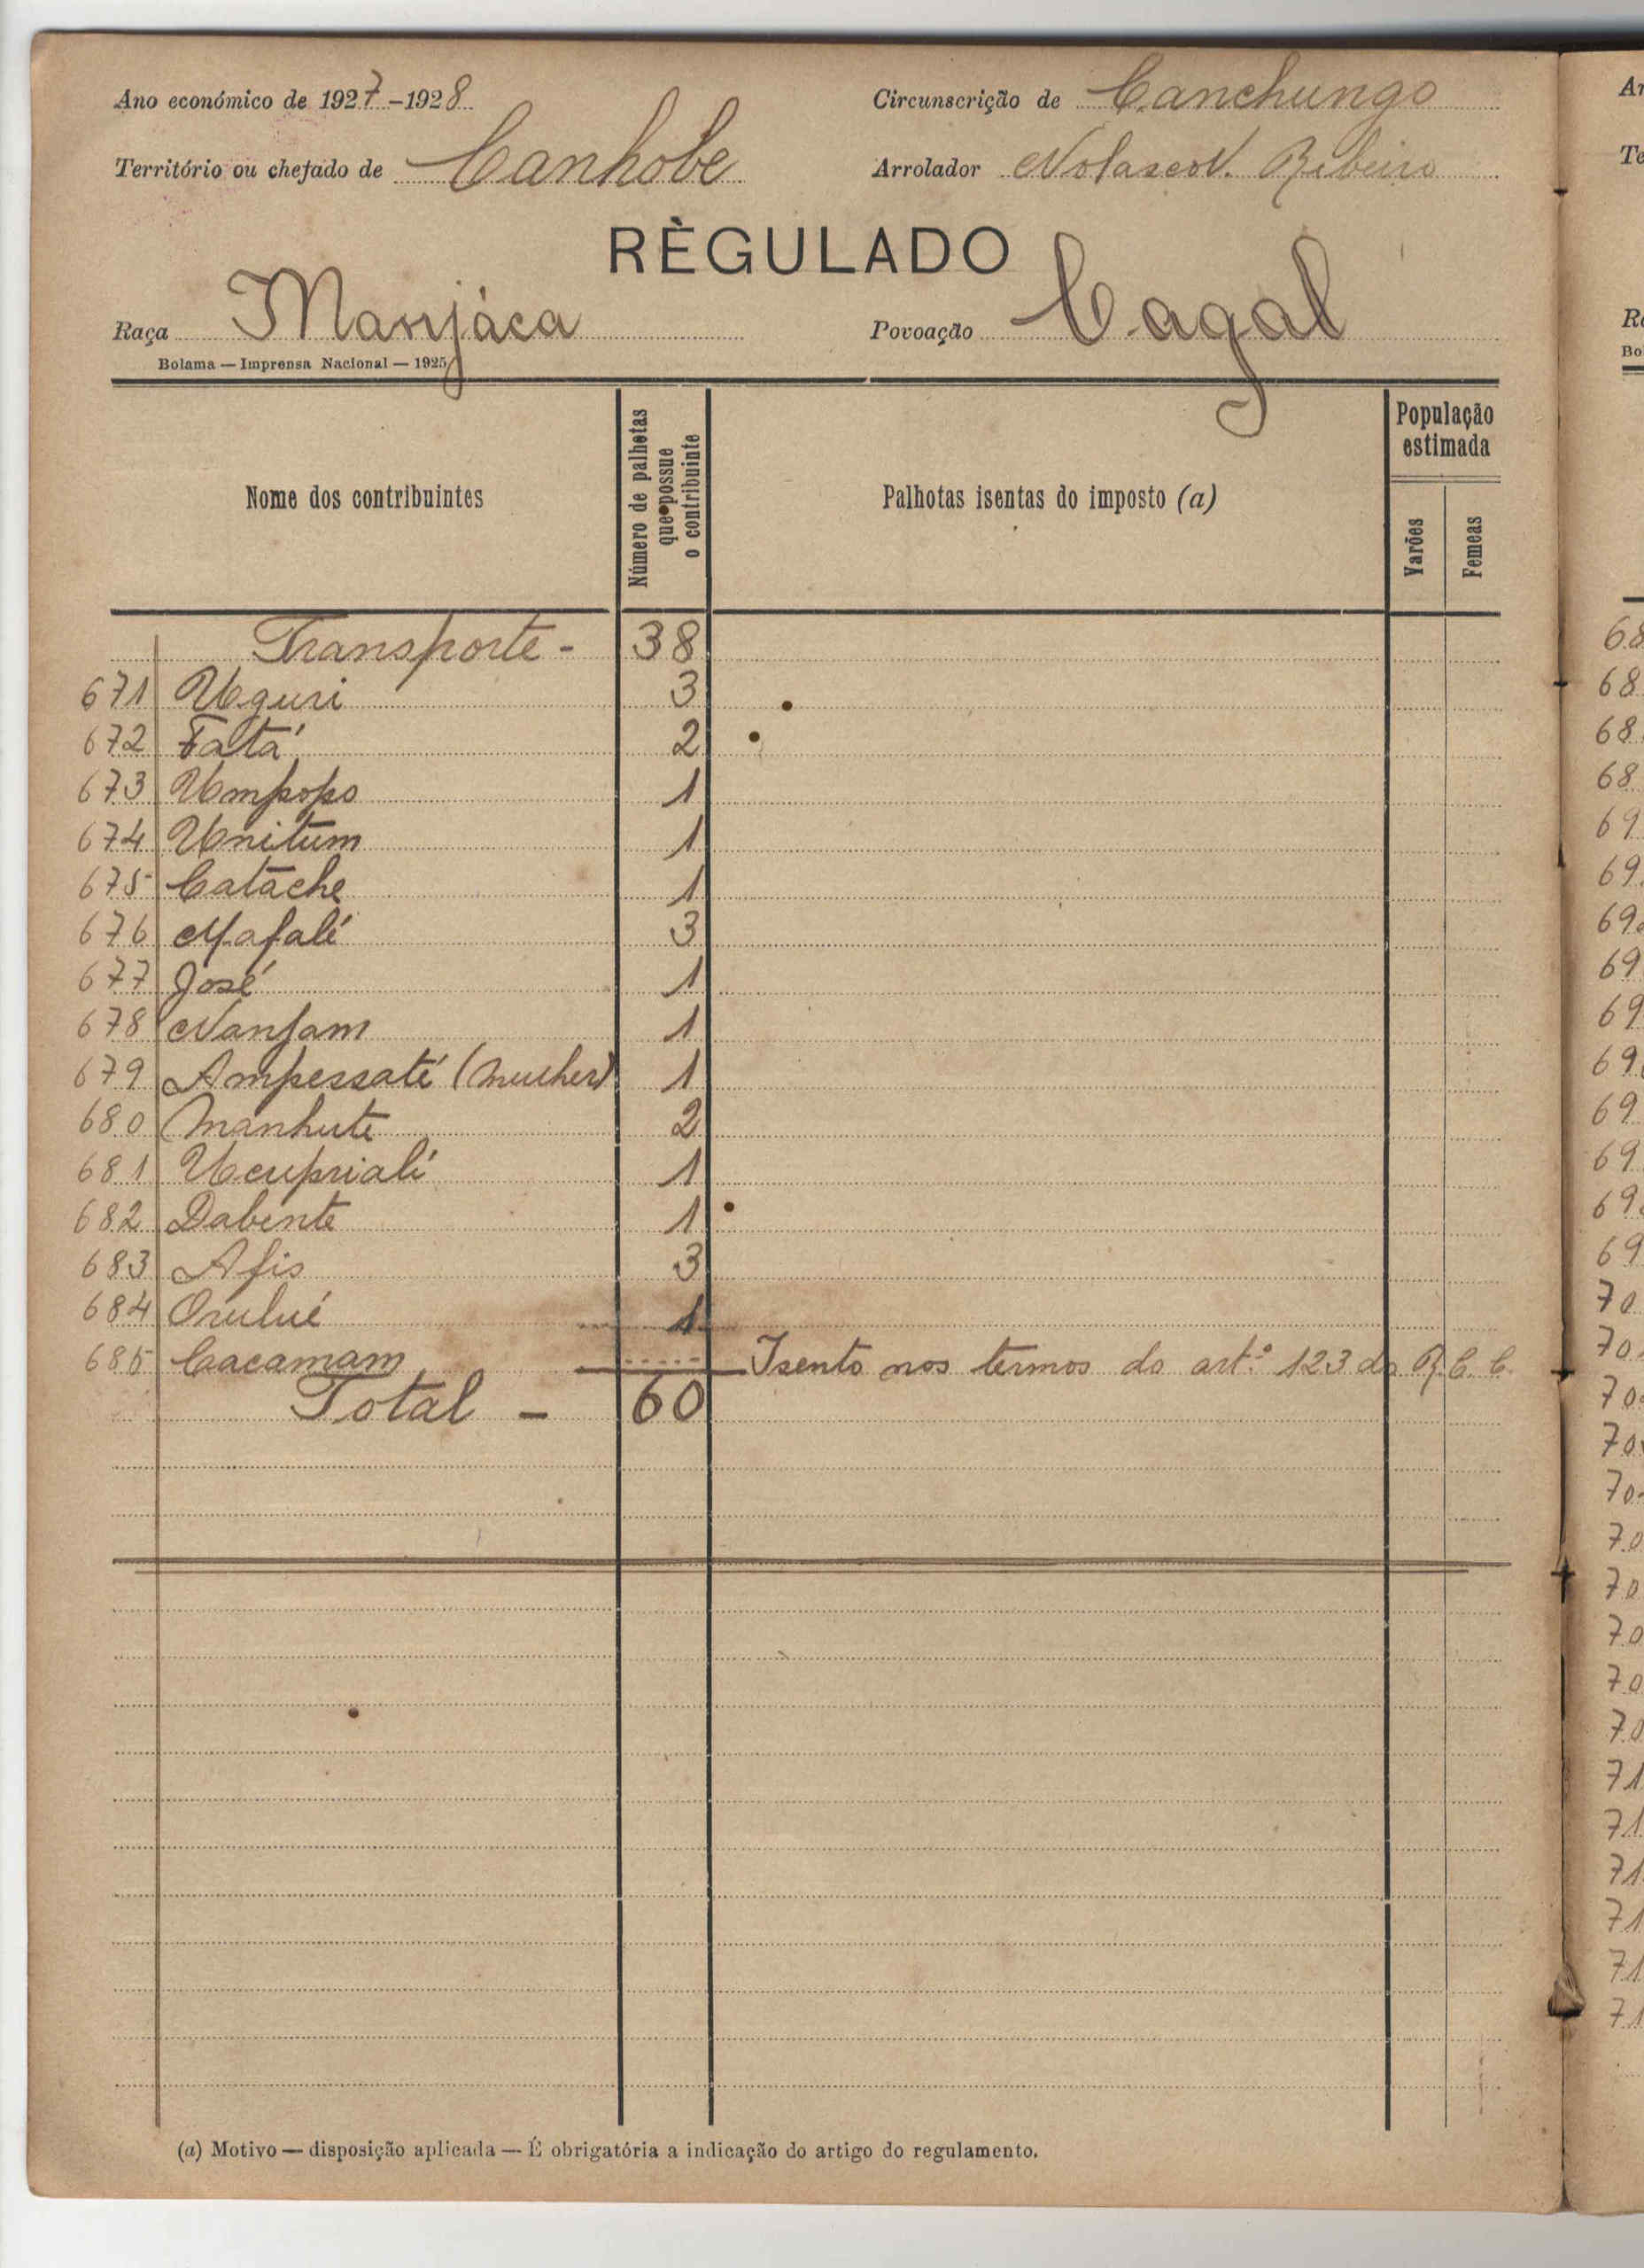 Ano económico de 1927-1928
Circunscrição de Canchungo
Território ou chefado de Canhobe
Arrolador Nolasco N. Ribeiro
RÈGULADO
Raça Manjáca
Povoação Cagal
Bolama — Imprensa Nacional — 1925
Nome dos contribuintes
Número de palhotas que possue o contribuinte
Palhotas isentas do imposto (a)
População estimada
Varões
Femeas
Transporte - 38
671 Uguri 3
672 Fatá 2
673 Umpopo 1
674 Unitum 1
675 Catache 1
676 Mafalé 3
677 José 1
678 Nanfam 1
679 Ampessaté (mulher) 1
680 Manhute 2
681 Ucuprialé 1
682 Dabente 1
683 Afis 3
684 1
685 Cacamam ..... Isento nos termos do art.º 123 do R. C. C.
Total - 60
(a) Motivo — disposição aplicada — É obrigatória a indicação do artigo do regulamento.